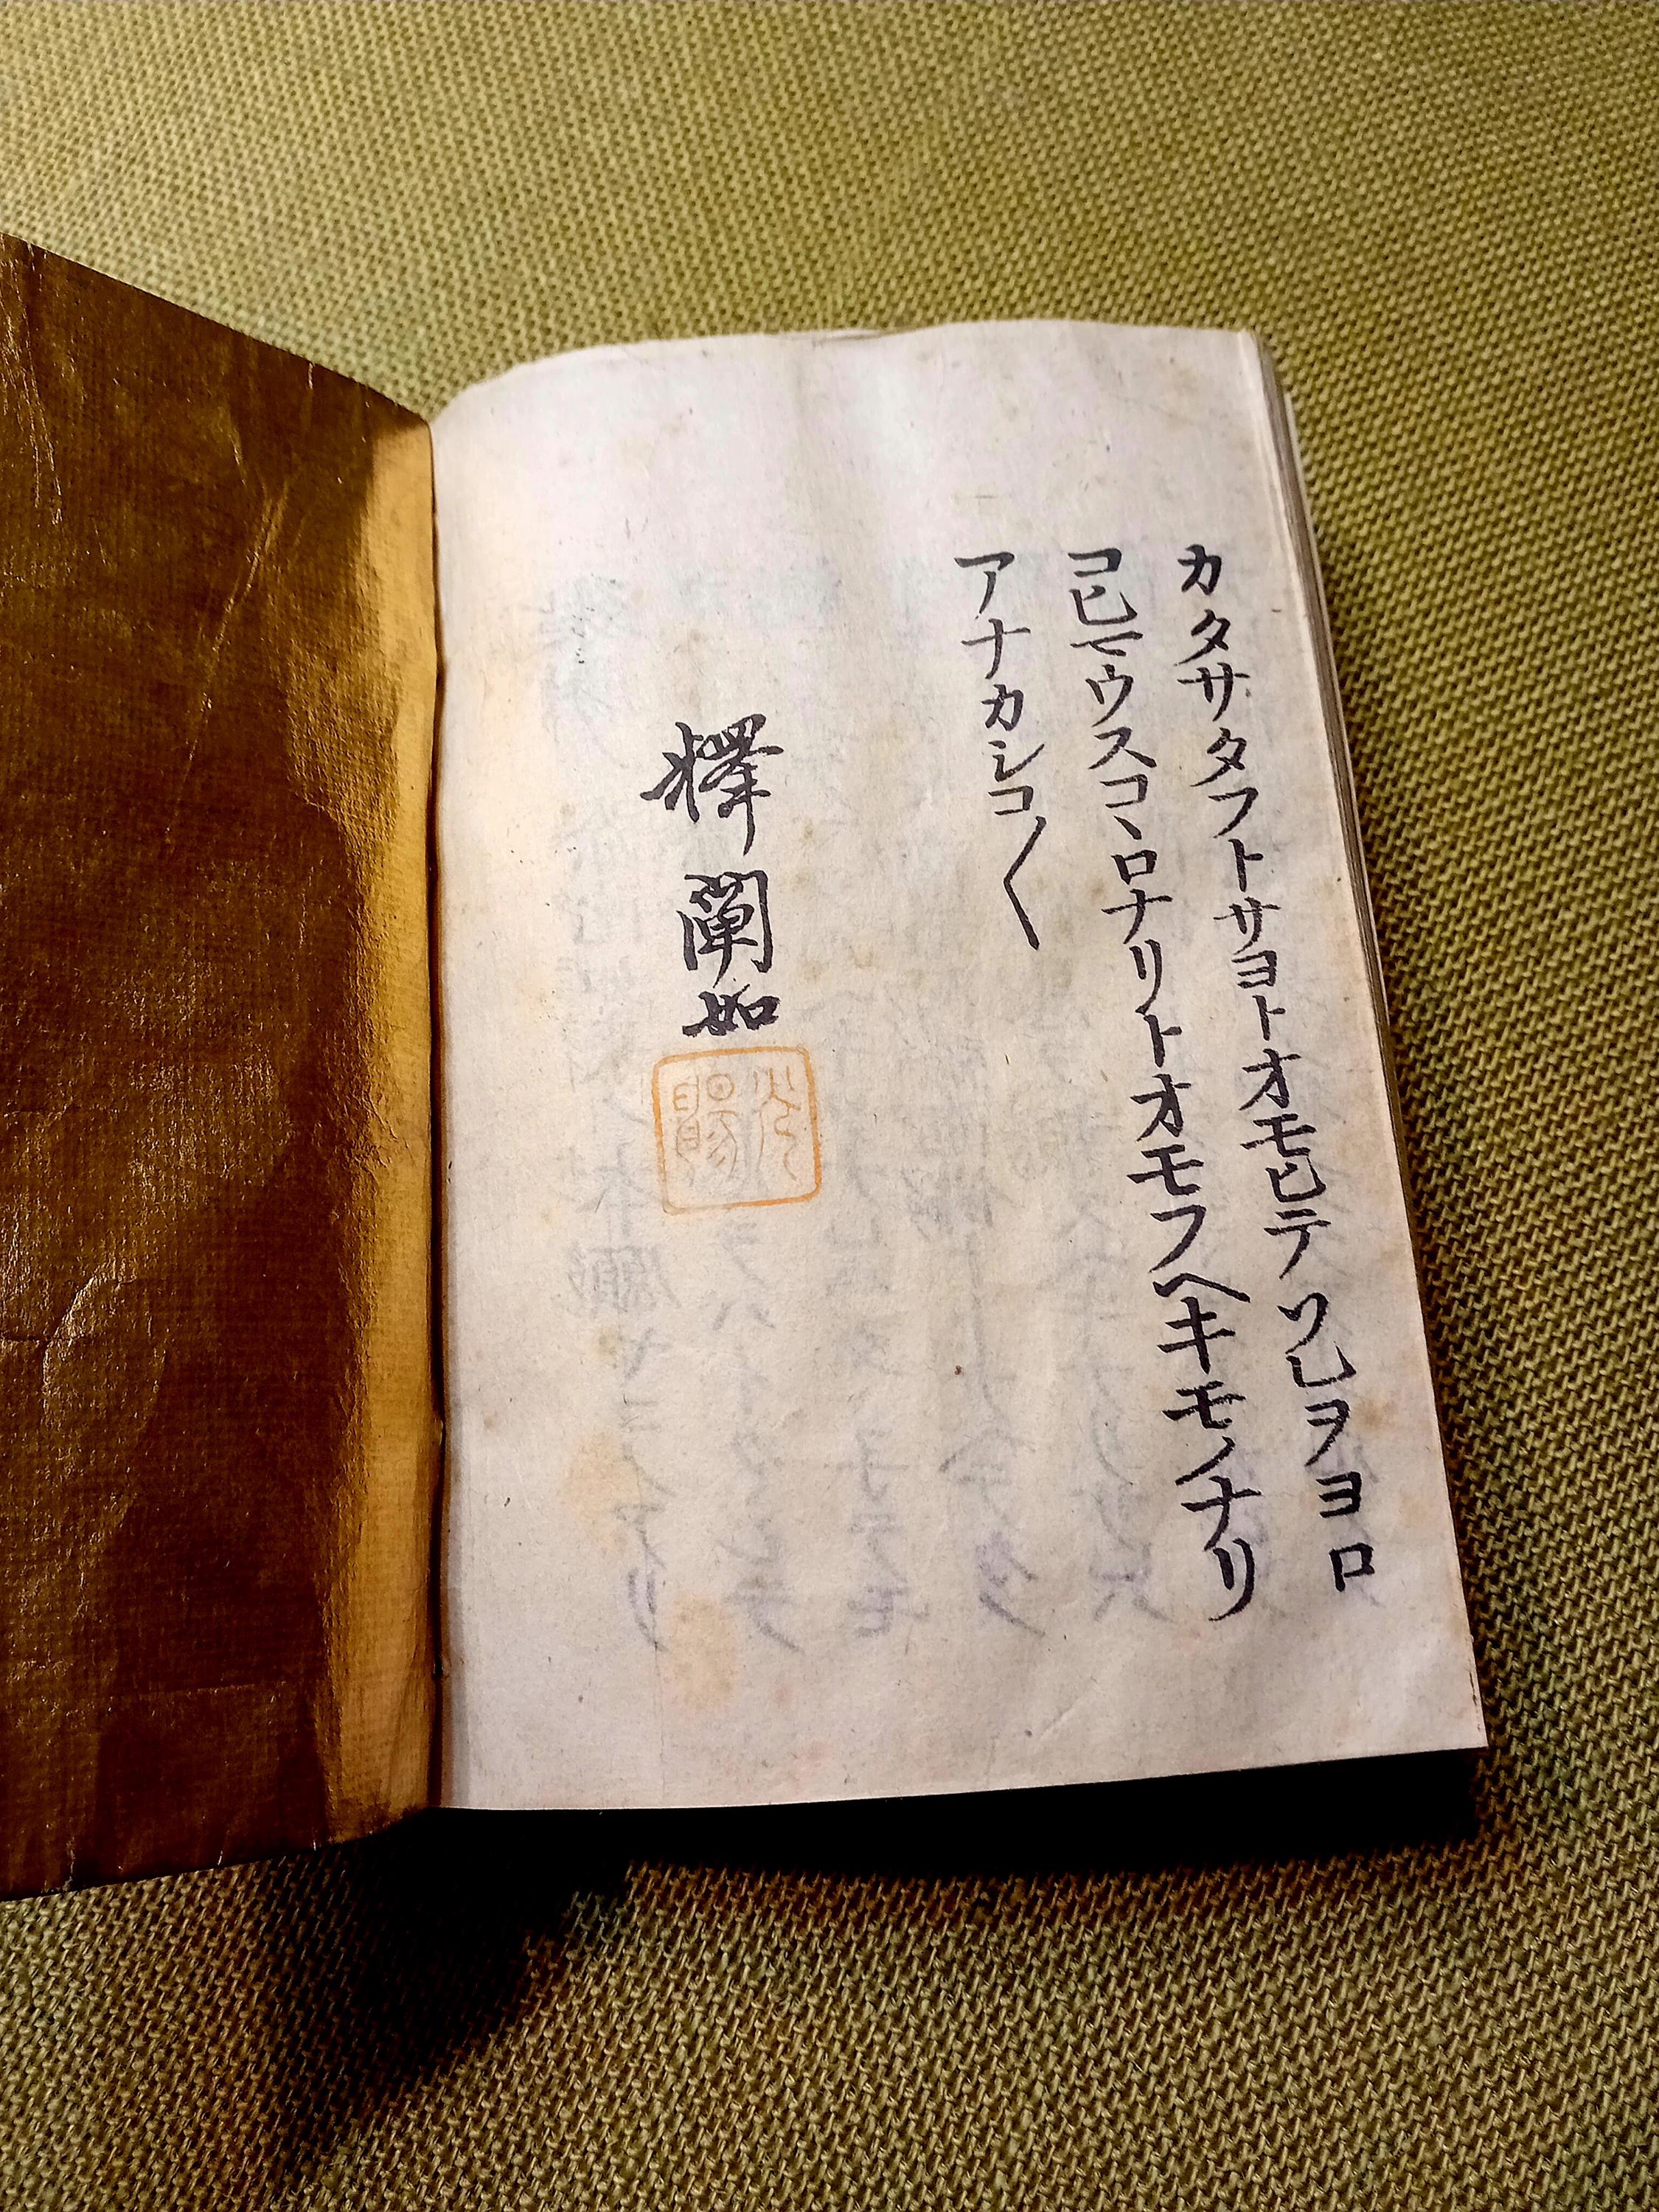 カタサタフトサヨトオモヒテソヒヲヨロ
コヒマウスコヽロナリトオモフヘキモノナリ
アナカシコ〱
釋闡如
光